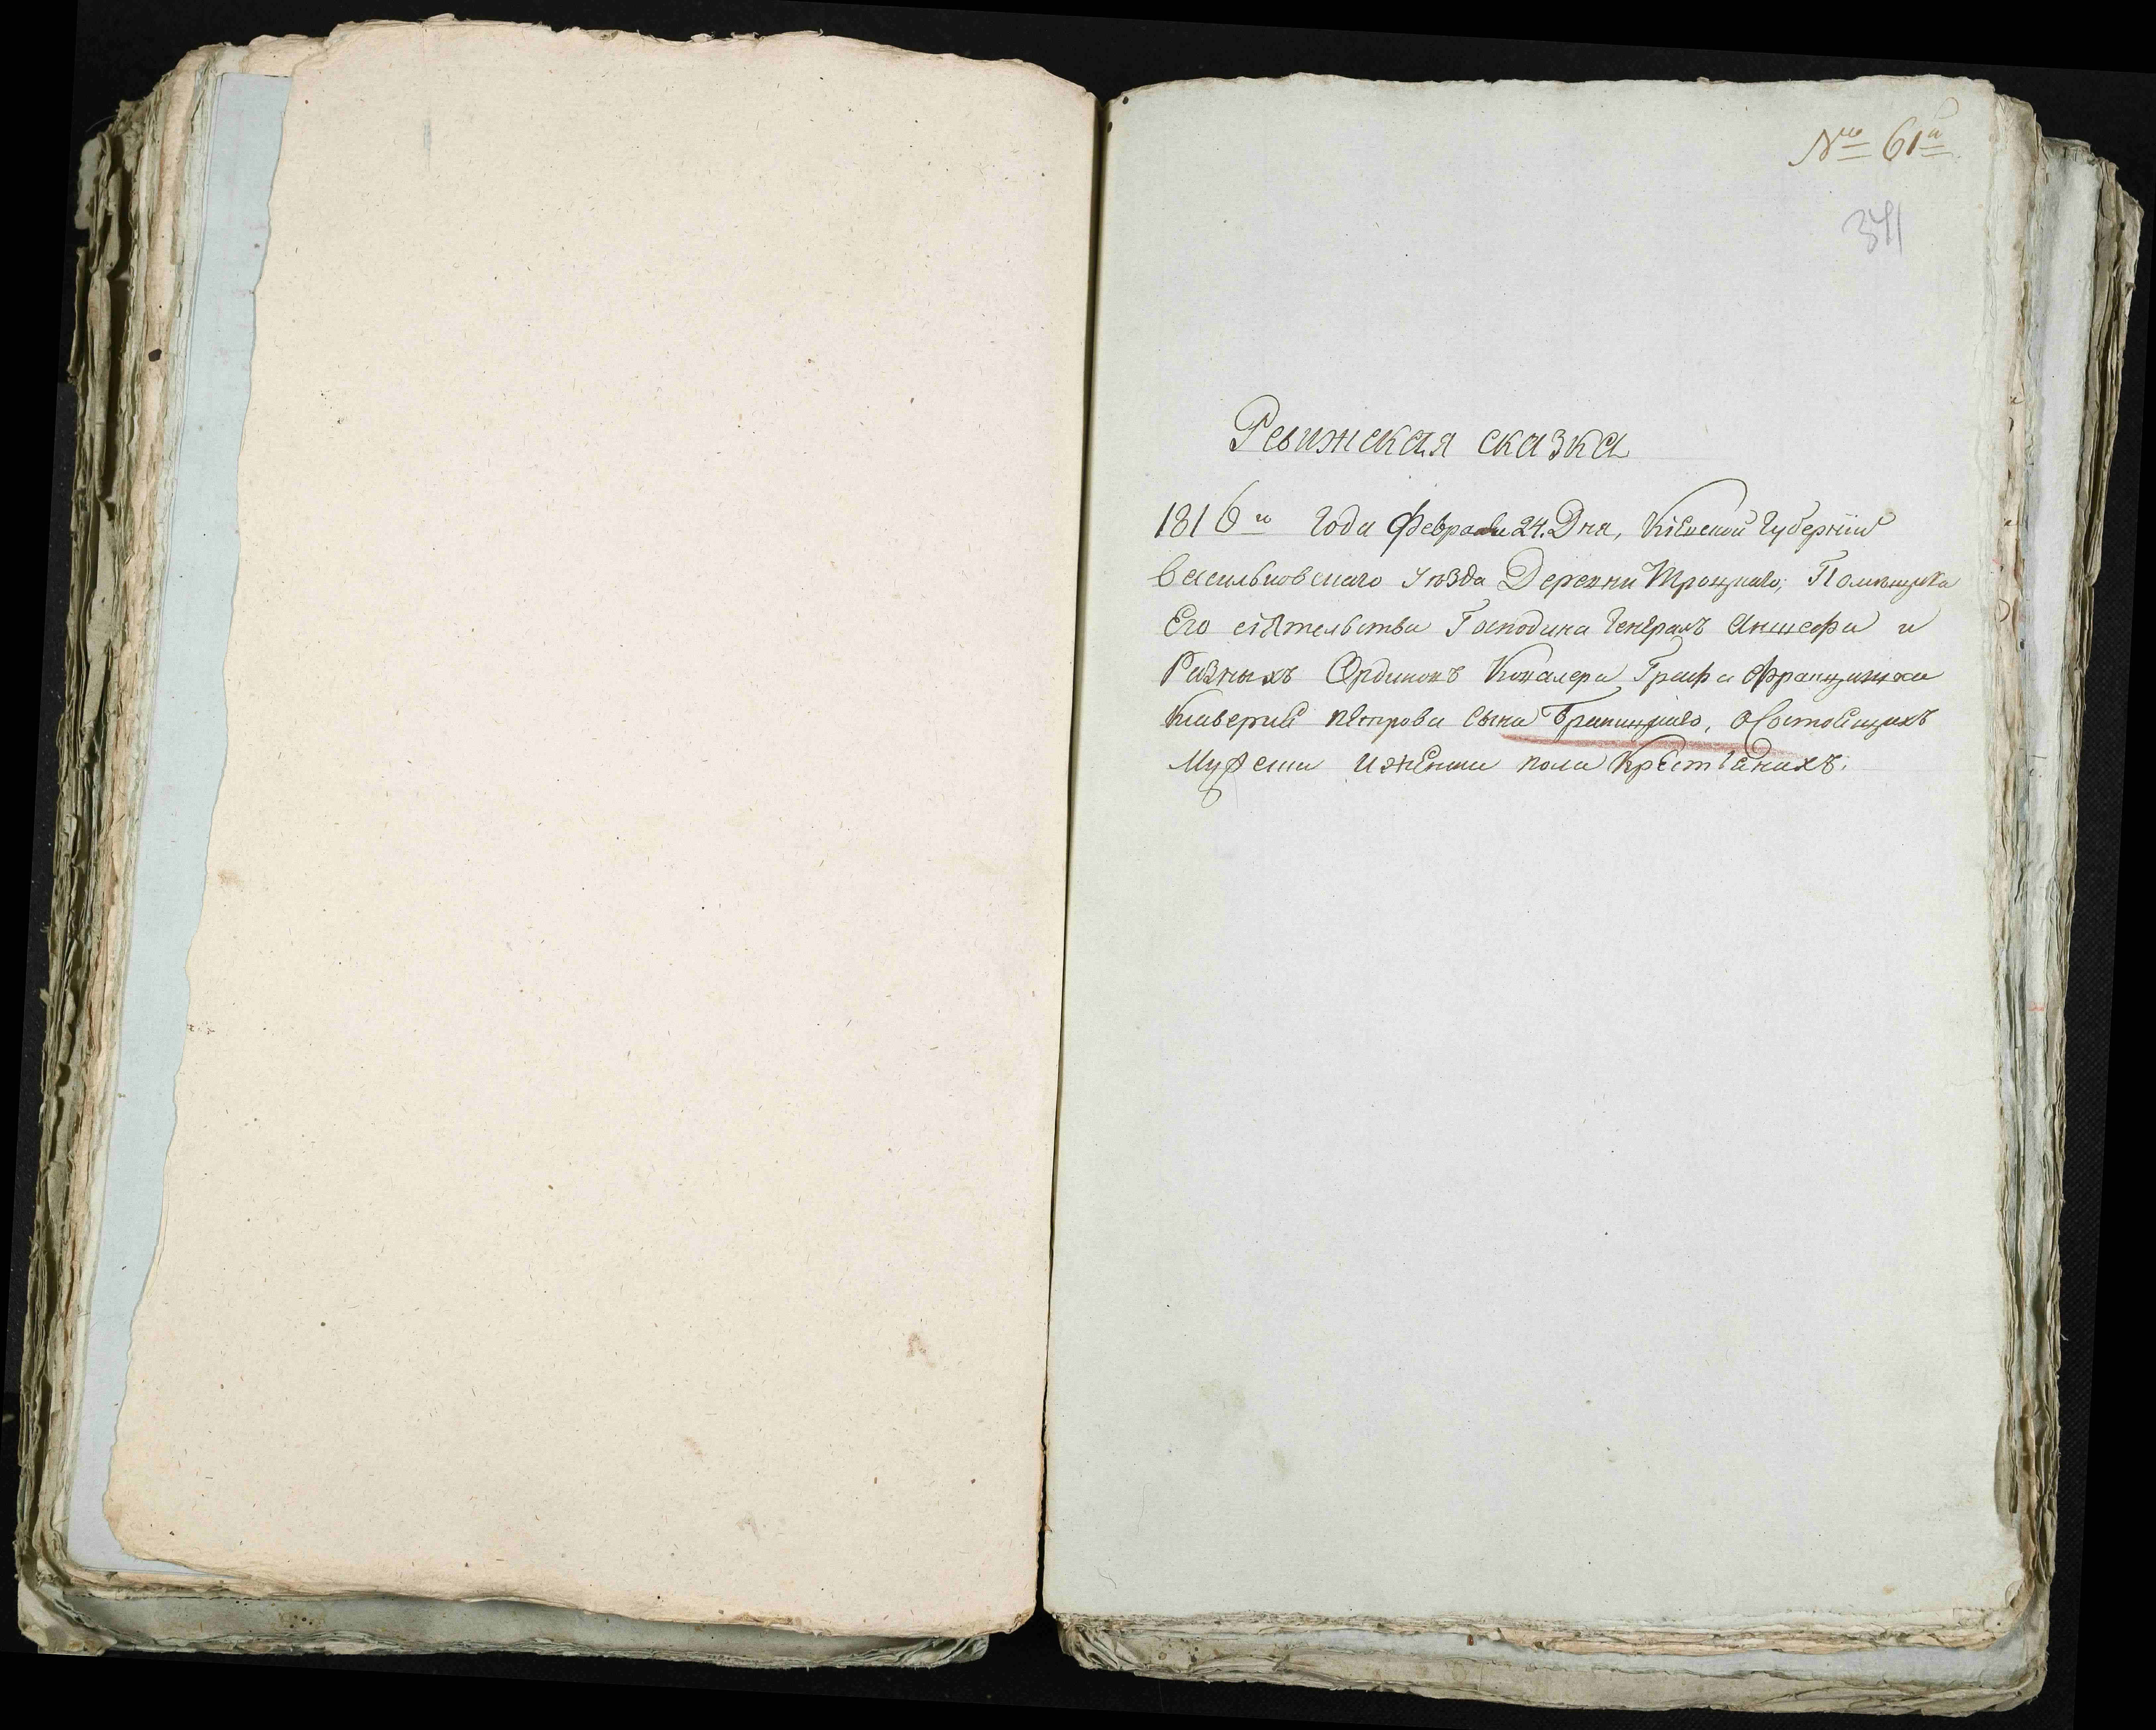 № 61й
341
Ревижская сказка
1816го Года Февраля 24. Дня, Кіевской Губерніи
Васильковскаго Уѣзда Деревни Троцкаго, Помещика
Его сіятельства Господина Генералъ Аншефа и
Разныхъ Ординовъ Ковалера Графа Францишка
Ксаверия петрова Сына Браницкаго, оСостоящихъ
Мужеска иженска пола Крестьянахъ.